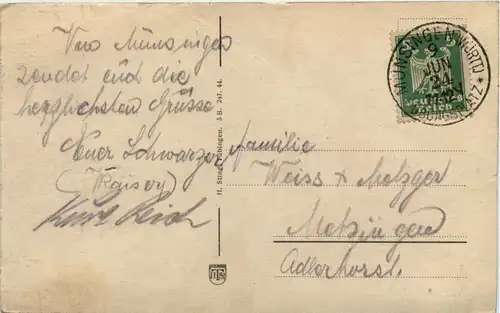 Von Münsingen
sendet euch die
herzlichsten Grüsse
Euer Schwarzer
(Kaiser)
Kurt Reich
H. Sting, Tübingen. 3 B. 247. 44.
MÜNSINGEN (WÜRTT)
9
JUN
24
Familie
Weiss & Metzger
Metzingen
Adlerhorst.